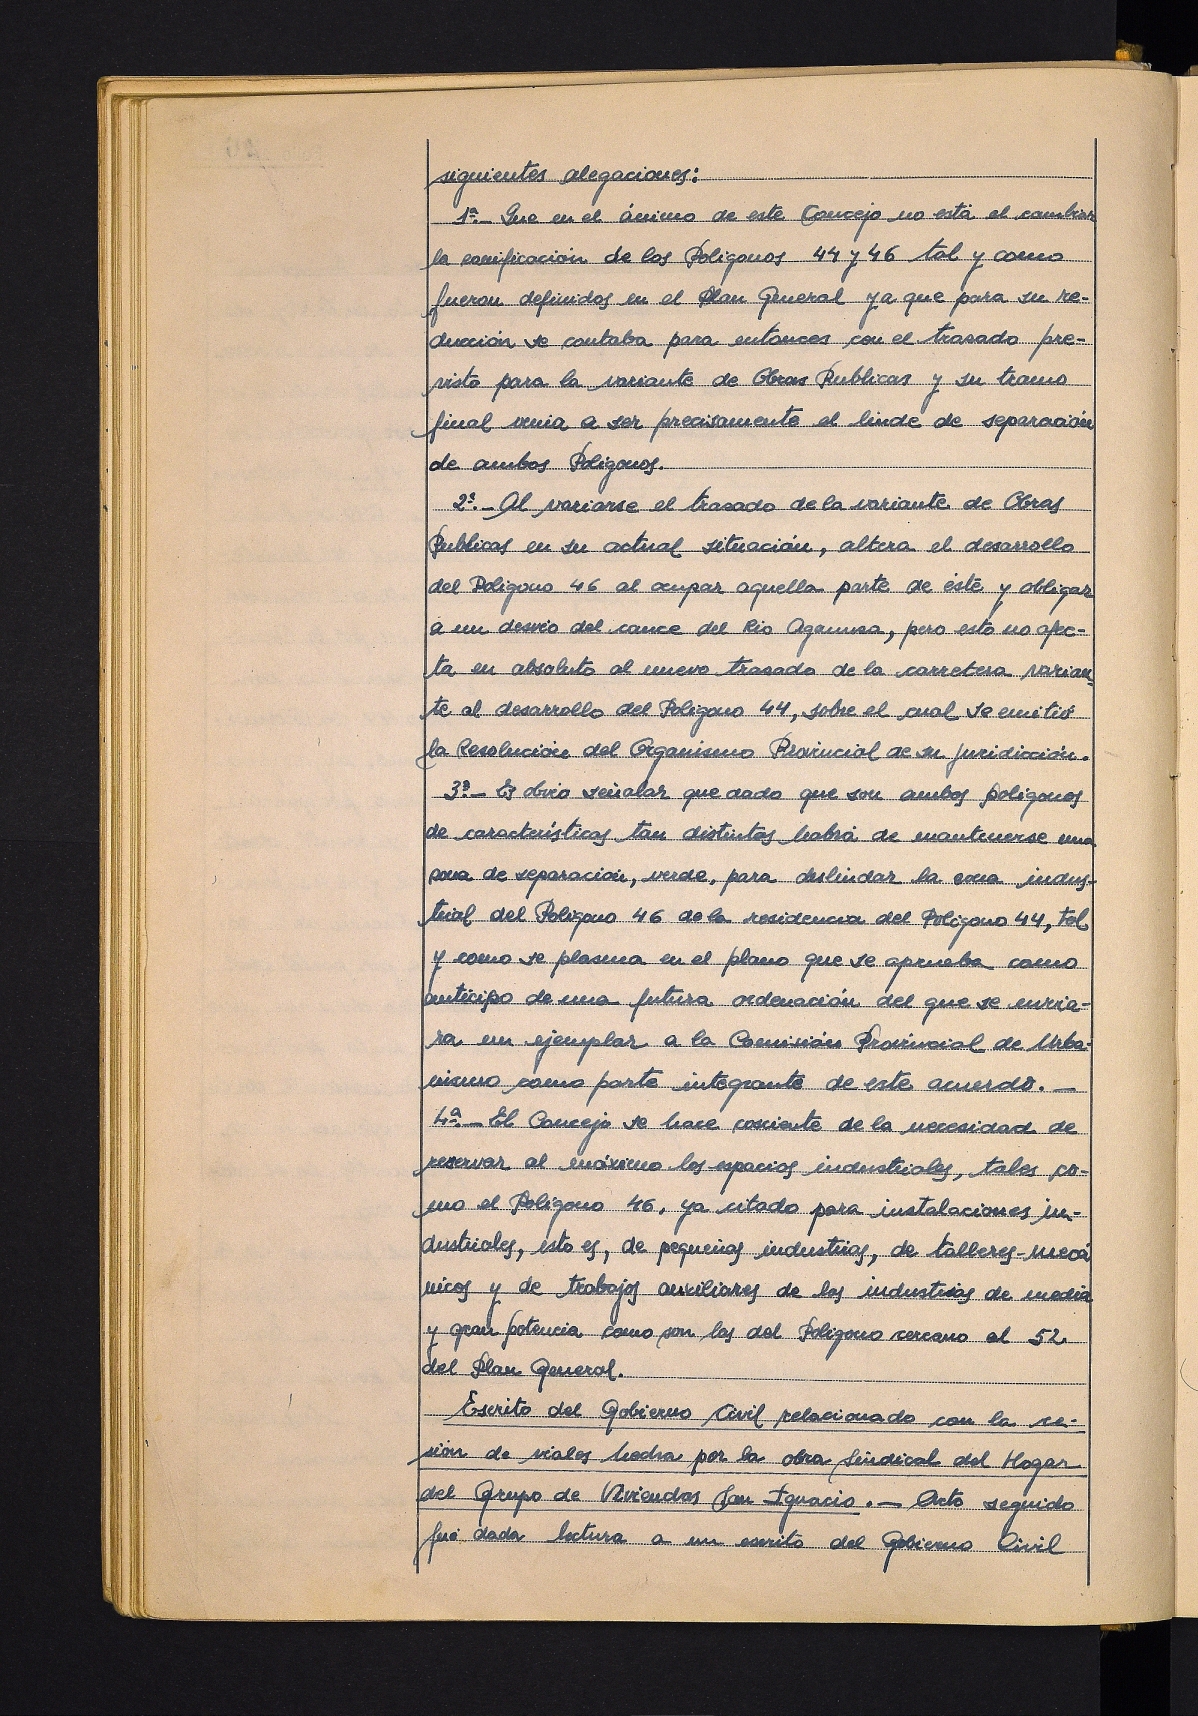 siguientes alegaciones:
1ª.- Que en el ánimo de este Concejo no está el cambiar
la zonificación de los Poligonos 44 y 46 tal y como
fueron definidos en el Plan General ya que para su re-
dacción se contaba para entonces con el trasado pre-
visto para la variante de Obras Publicas y su tramo
final venia a ser precisamente el linde de separación
de ambos Poligonos.
2ª.- Al variarse el trasado de la variante de Obras
Publicas en su actual situación, altera el desarrollo
del Poligono 46 al ocupar aquella parte de éste y obligar
a un desvio del cauce del Rio Agaunza, pero esto no afec-
ta en absoluto al nuevo trasado de la carretera varian-
te al desarrollo del Poligono 44, sobre el cual se emitió
la Resolución del Organismo Provincial de su juridicción.
3ª.- Es obvio señalar que dado que son ambos poligonos
de características tan distintas habrá de mantenerse una
zona de separación, verde, para deslindar la zona indus-
trial del Poligono 46 de la residencia del Poligono 44, tal
y como se plasma en el plano que se aprueba como
anticipo de una futura ordenación del que se envia-
ra un ejemplar a la Comisión Provincial de Urba-
nismo como parte integrante de este acuerdo. —
4ª.- El Concejo se hace cosciente de la necesidad de
reservar al máximo los espacios industriales, tales co-
mo el Poligono 46, ya citado para instalaciones in-
dustriales, esto es, de pequeñas industrias, de talleres-mecá
nicos y de trabajos auxiliares de las industrias de media
y gran potencia como son las del Poligono cercano al 52
del Plan General.
Escrito del Gobierno Civil relacionado con la ce-
sión de viales hecha por la obra Sindical del Hogar
del Grupo de Viviendas San Ignacio. — Acto seguido
fué dada lectura a un escrito del Gobierno Civil